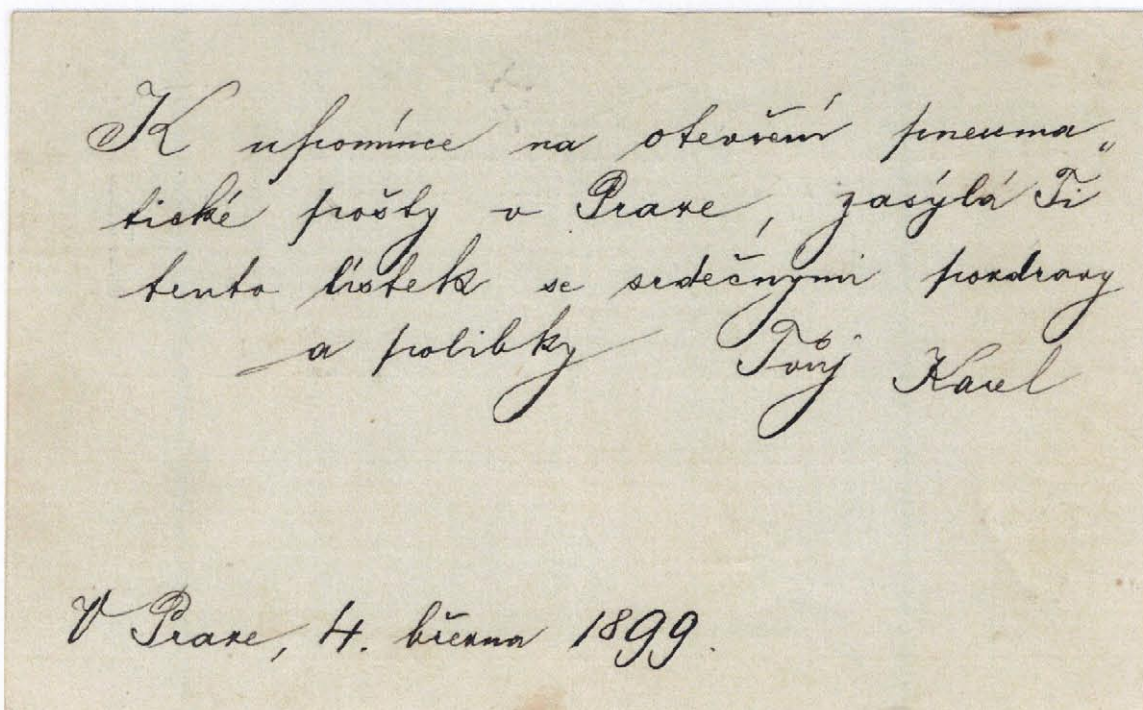 K upomínce na otevření pneuma„
tické pošty v Praze, zasýlá Ti
tento lístek se srdečnými pozdravy
a polibky Tvůj Karel
V Praze, 4. března 1899.